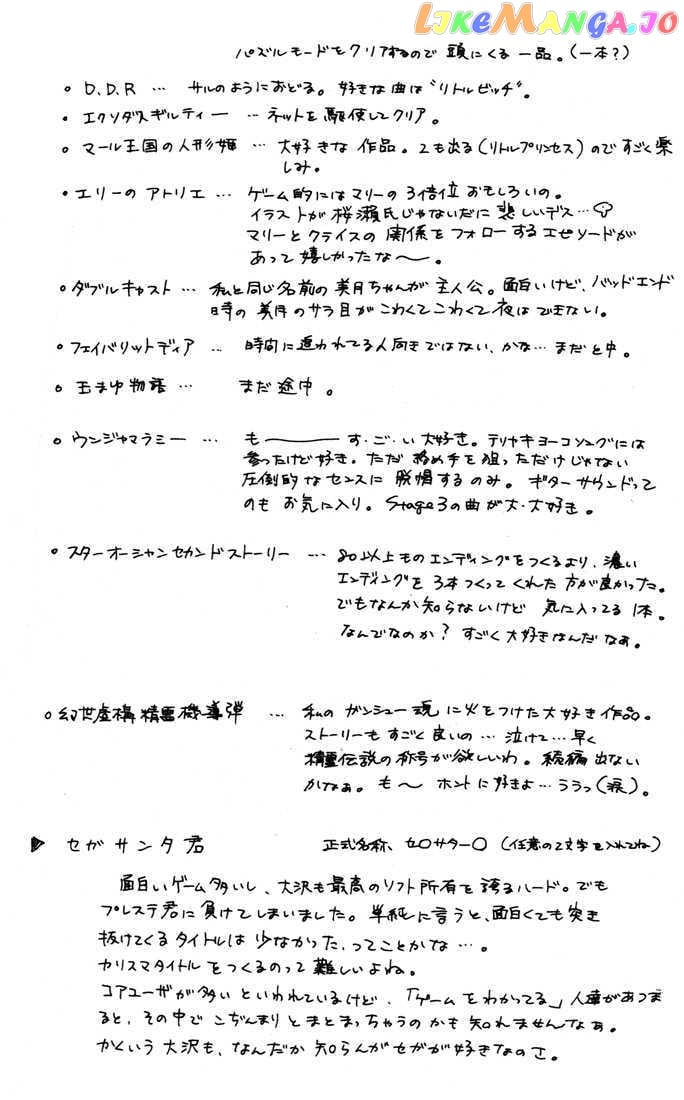 LIKEMANGA.IO
パズルモードをクリアするので 頭にくる 一品。(一本?)
◦ D.D.R … サルのようにおどる。好きな曲は"リトルビッチ"。
◦ エクソダスギルティー … ネットを駆使してクリア。
◦ マール王国の人形姫 … 大好きな作品。2も出る(リトルプリンセス)のですごく楽
しみ。
◦ エリーのアトリエ … ゲーム的にはマリーの3倍位おもしろいの。
イラストが桜瀬氏じゃないだに悲しいデス…
マリーとクライスの関係をフォローするエピソードが
あって嬉しかったな〜。
◦ ダブルキャスト … 私と同じ名前の美月ちゃんが主人公。面白いけど、バッドエンド
時の美月のサラ目がこわくてこわくて夜はできない。
◦ フェイバリットディア … 時間に追われてる人向きではない、かな… まだと中。
◦ 玉まゆ物語 … まだ途中。
◦ ウンジャマラミー … も────す・ご・い大好き。テリヤキヨーコソングには
参ったけど好き。ただ 務め手を狙っただけじゃない
圧倒的なセンスに脱帽するのみ。ギターサウンドって
のもお気に入り。Stage3の曲が大・大好き。
◦ スターオーシャンセカンドストーリー … 80以上ものエンディングをつくるより、濃い
エンディングを3本つくってくれた方が良かった。
でもなんか知らないけど 気に入ってる1本。
なんでなのか? すごく大好きなんだなぁ。
◦ 幻世虚構精霊機導弾 … 私のガンシュー魂に火をつけた大好き作品。
ストーリーもすごく良いの… 泣けて… 早く
精霊伝説の称号が欲しいわ。続編出ない
かなぁ。も〜 ホントに好きよ… ううっ(涙)。
▶ セガサンタ君 正式名称、セ〇サター〇(任意の2文字を入れてね)
面白いゲーム多いし、大沢も最高のソフト所有を誇るハード。でも
プレステ君に負けてしまいました。単純に言うと、面白くても突き
抜けてくるタイトルは少なかった、ってことかな…。
カリスマタイトルをつくるのって難しいよね。
コアユーザが多いといわれているけど、「ゲームをわかってる」人達があつま
ると、その中でこぢんまりとまとまっちゃうのかも知れませんなぁ。
かくいう大沢も、なんだか知らんがセガが好きなのさ。